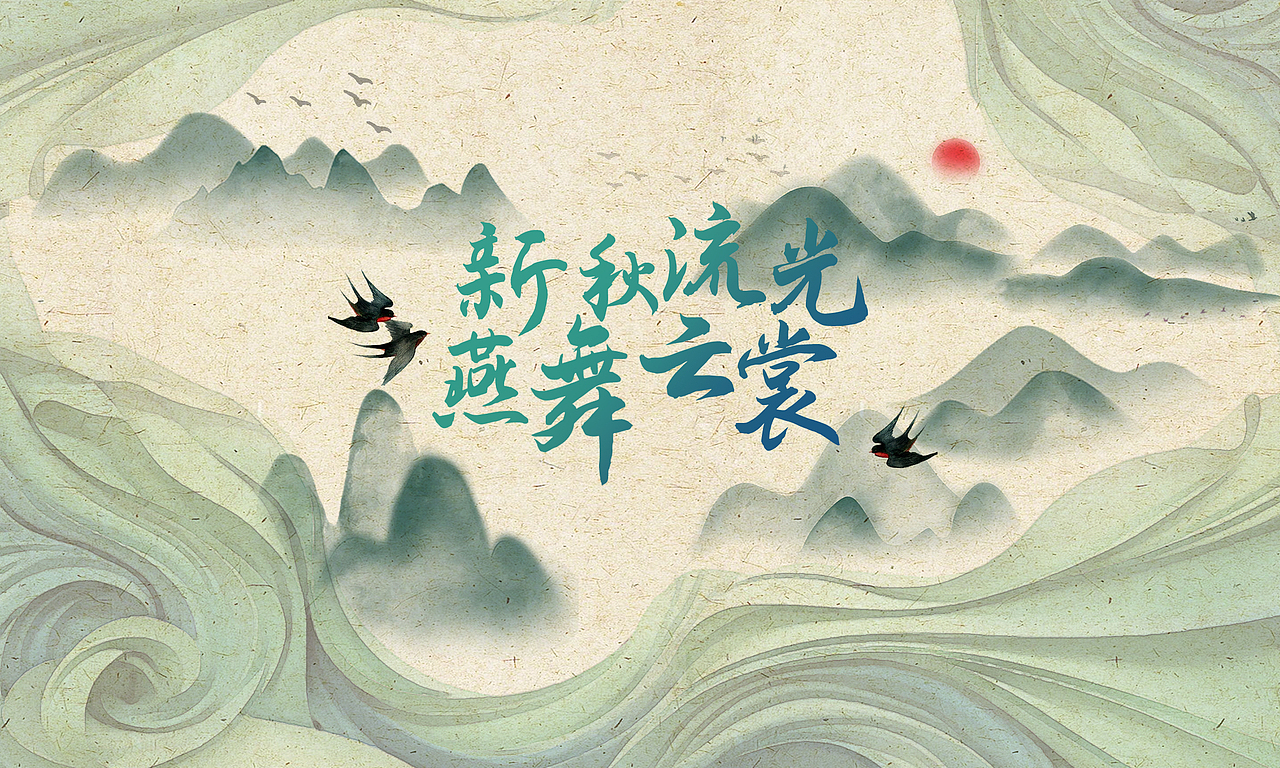 新秋流光
燕舞云裳